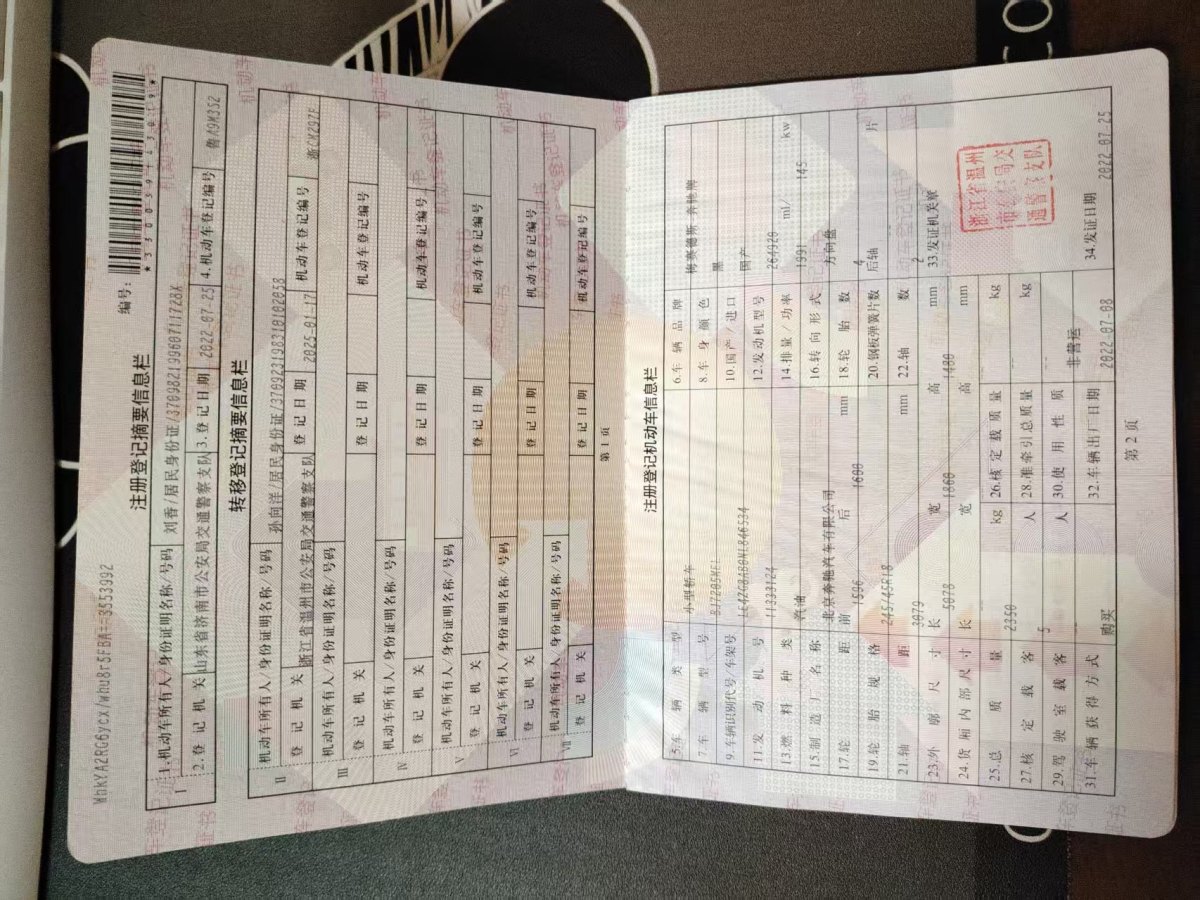 WhkYA2RG6ycx/whu8r5FBA==3553992
编号：
*330039143019*
注册登记摘要信息栏
I 1.机动车所有人/身份证明名称/号码 刘香/居民身份证/37098219960711728X
2.登记机关 山东省济南市公安局交通警察支队 3.登记日期 2022-07-25 4.机动车登记编号 鲁A9M352
转移登记摘要信息栏
II 机动车所有人/身份证明名称/号码 孙向洋/居民身份证/370923198310102058
登记机关 浙江省温州市公安局交通警察支队 登记日期 2025-01-17 机动车登记编号 浙CM297F
III 机动车所有人/身份证明名称/号码
登记机关 登记日期 机动车登记编号
IV 机动车所有人/身份证明名称/号码
登记机关 登记日期 机动车登记编号
V 机动车所有人/身份证明名称/号码
登记机关 登记日期 机动车登记编号
VI 机动车所有人/身份证明名称/号码
登记机关 登记日期 机动车登记编号
VII 机动车所有人/身份证明名称/号码
登记机关 登记日期 机动车登记编号
第 1 页
注册登记机动车信息栏
5.车辆类型 小型轿车 6.车辆品牌 梅赛德斯-奔驰牌
7.车辆型号 8.车身颜色 黑
9.车辆识别代号/车架号 LE4ZG8AB0NL846534 10.国产/进口 国产
11.发动机号 11333124 12.发动机型号 264920
13.燃料种类 汽油 14.排量/功率 1991 ml/ 145 kw
15.制造厂名称 北京奔驰汽车有限公司 16.转向形式 方向盘
17.轮距 前 1596 后 1600 mm 18.轮胎数 4
19.轮胎规格 245/45R18 20.钢板弹簧片数 后轴 片
21.轴距 3079 mm 22.轴数 2
23.外廓尺寸 长 5078 宽 1860 高 1480 mm 33.发证机关章
24.货厢内部尺寸 长 宽 高 mm
浙江省温州
市公安局交
通警察支队
25.总质量 2350 kg 26.核定载质量 kg
27.核定载客 5 人 28.准牵引总质量 kg
29.驾驶室载客 人 30.使用性质 非营运
31.车辆获得方式 购买 32.车辆出厂日期 2022-07-08 34.发证日期 2022-07-25
第 2 页